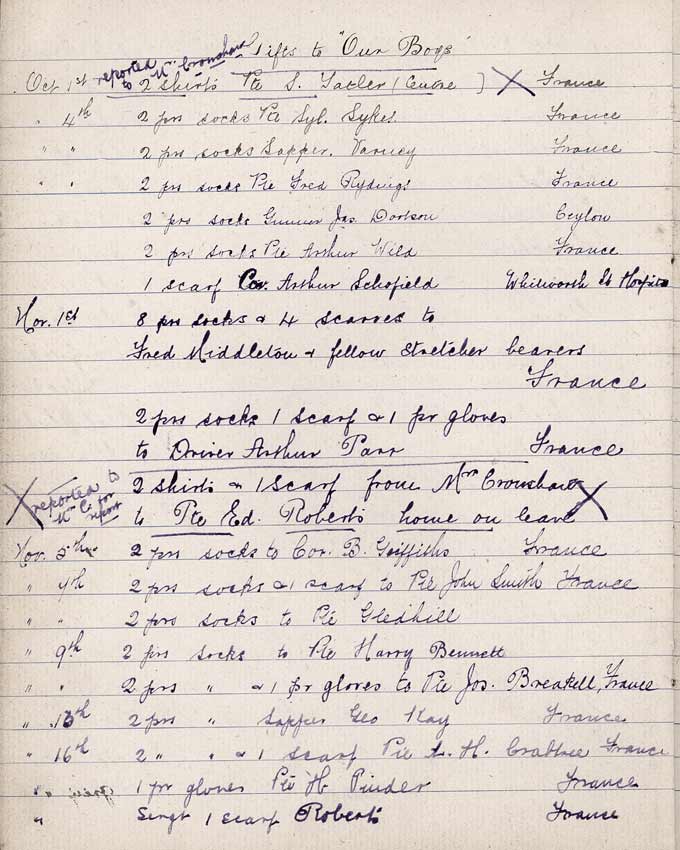 Gifts to "Our Boys"
reported to Mrs Cronshaw
Oct 1st 2 shirts Pte S. (Centre) X France
" 4th 2 prs socks Pte Syl. Sykes. France
" " 2 prs socks Sapper. Varney France
" " 2 prs socks Pte Fred Rydings France
2 prs socks Gunner Jas Dootson Ceylon
2 prs socks Pte Arthur Wild France
1 scarf Cor. Arthur Schofield Whitworth St Hospital
Nov. 1st 8 prs socks & 4 scarves to
Fred Middleton & fellow stretcher bearers
France
2 prs socks 1 scarf & 1 pr gloves
to Driver Arthur Parr France
2 shirts & 1 scarf from Mrs Cronshaw X
X reported to Mrs C for report
to Pte Ed. Roberts home on leave
Nov. 5th 2 prs socks to Cor. B. Griffiths France
" 7th 2 prs socks & 1 scarf to Pte John Smith France
" " 2 prs socks to Pte Gledhill
" 9th 2 prs socks to Pte Harry Bennett
" " 2 prs " & 1 pr gloves to Pte Jos. Breakell, France
" 13th 2 prs " Sapper Geo Kay France
" 16th 2 " " & 1 scarf Pte A. H. Crabtree France
" " 1 pr gloves Pte H Pinder France
" Sergt 1 scarf Roberts France